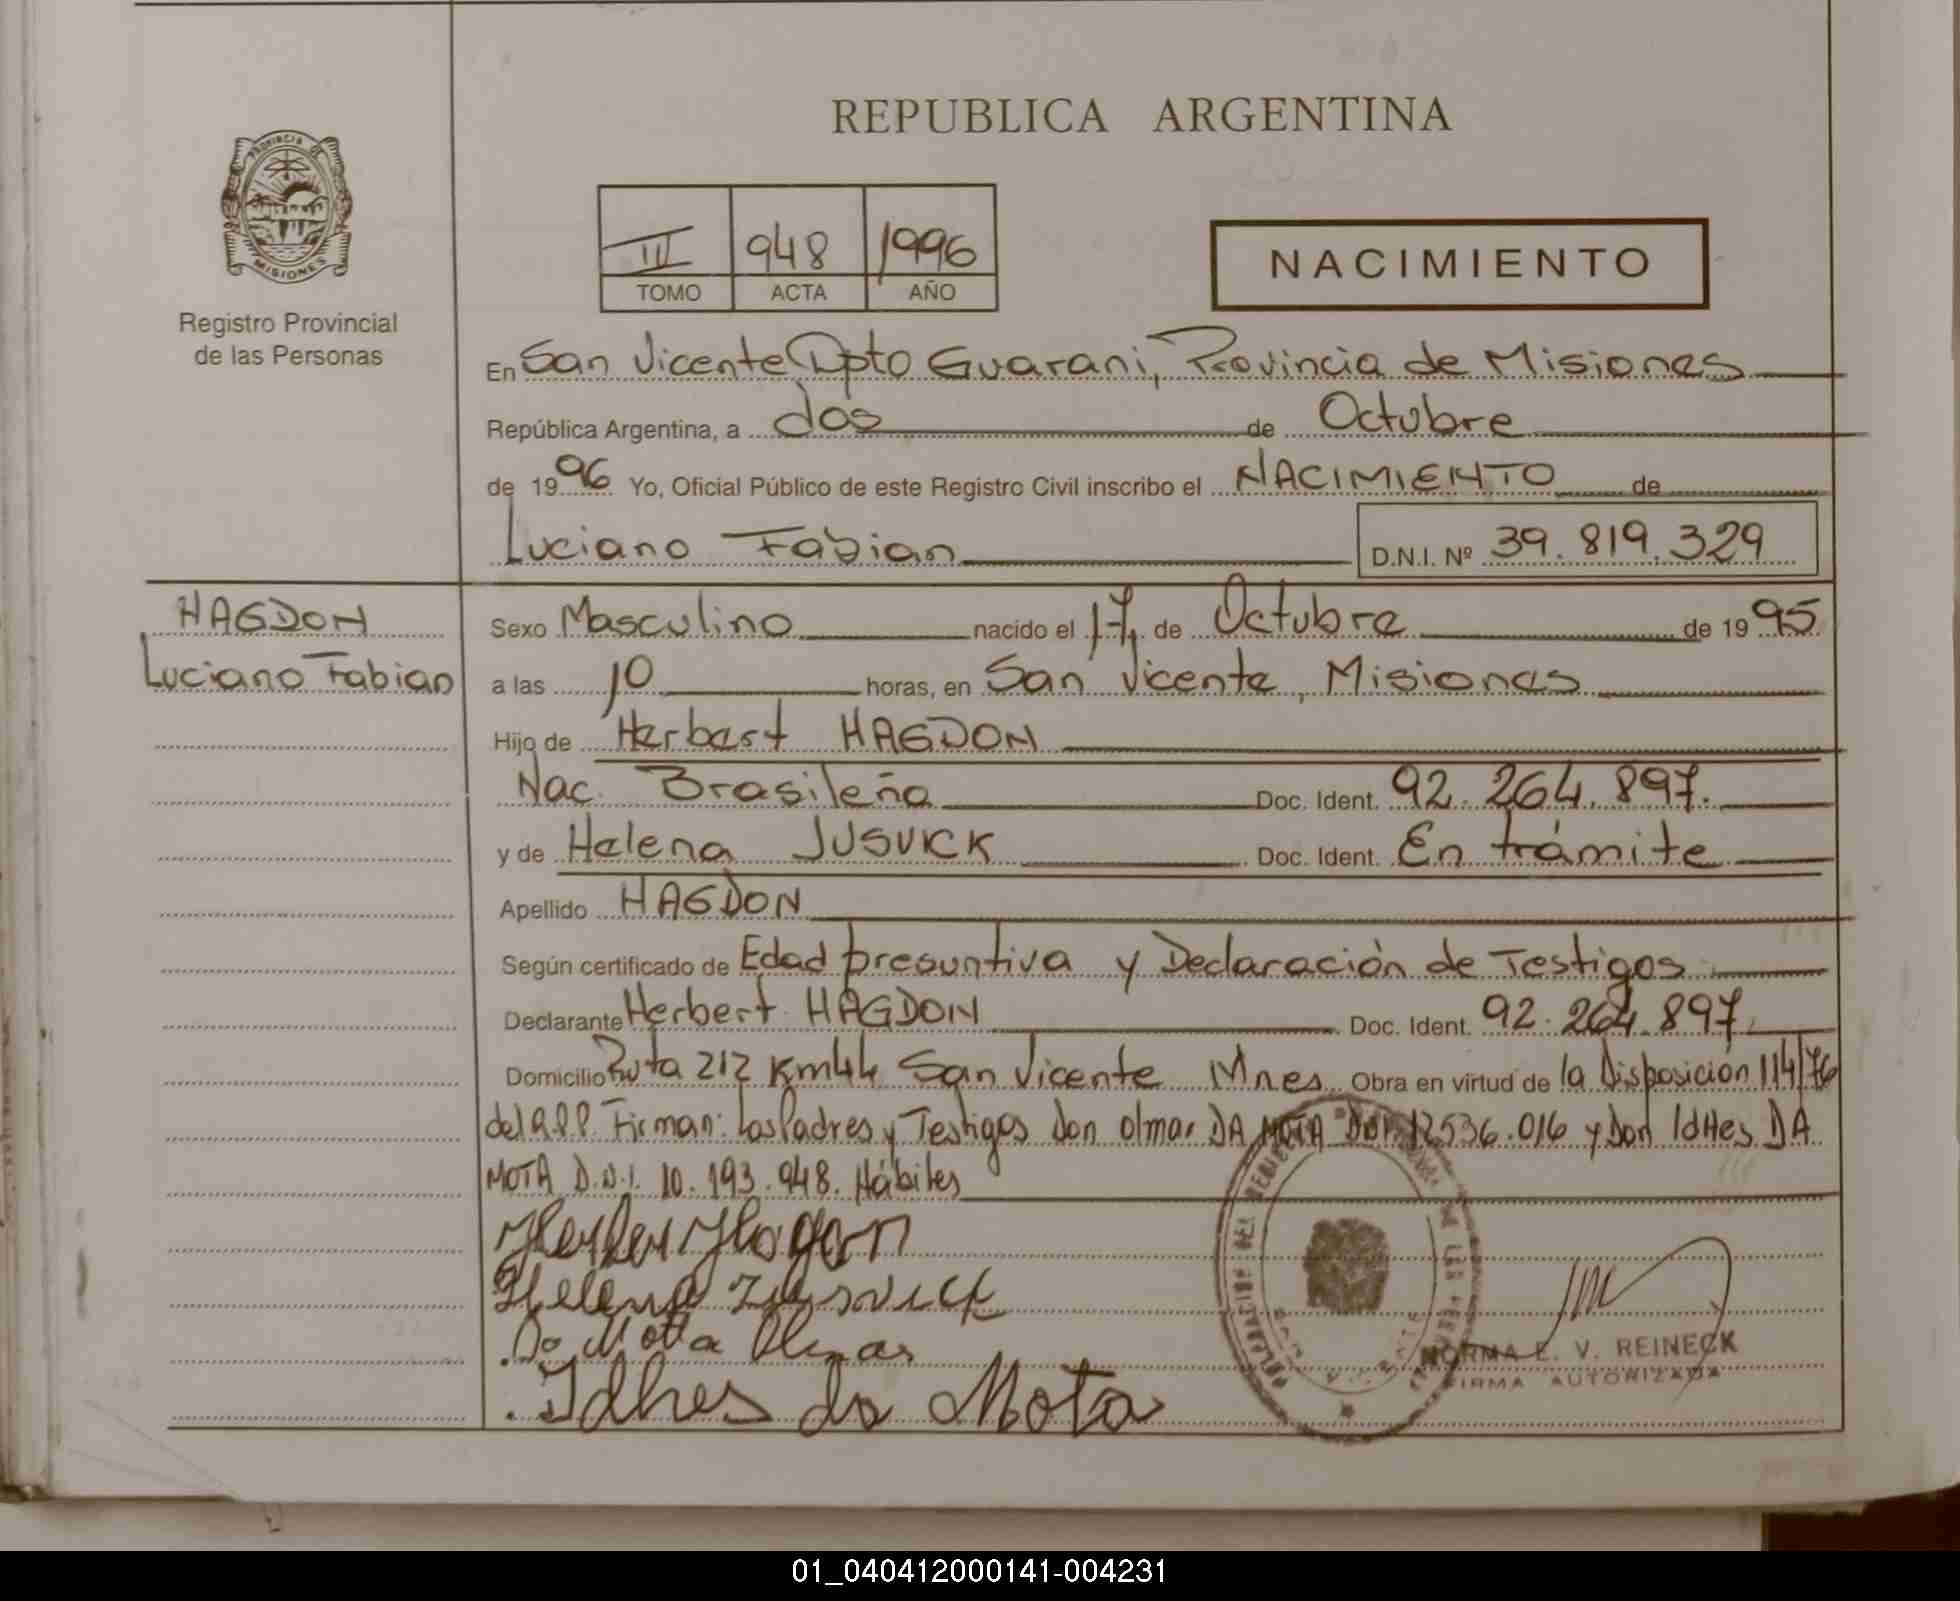 REPUBLICA ARGENTINA
PROVINCIA DE
MISIONES
Registro Provincial
de las Personas
III 948 1996
TOMO ACTA AÑO
NACIMIENTO
En San Vicente Dpto Guarani, Provincia de Misiones
República Argentina, a dos de Octubre
de 1996 Yo, Oficial Público de este Registro Civil inscribo el NACIMIENTO de
Luciano Fabian D.N.I. Nº 39.819.329
HAGDON
Luciano Fabian
Sexo Masculino nacido el 17 de Octubre de 1995
a las 10 horas, en San Vicente, Misiones
Hijo de Herbert HAGDON
Nac. Brasileña Doc. Ident. 92.264.897.
y de Helena JUSVICK Doc. Ident. En trámite
Apellido HAGDON
Según certificado de Edad presuntiva y Declaración de Testigos
Declarante Herbert HAGDON Doc. Ident. 92.264.897
Domicilio Ruta 212 Km 44 San Vicente Mnes Obra en virtud de la Disposición 114/76
del R.P.P. Firman: Los Padres y Testigos Don Olmar DA MOTA D.N.I. 12.536.016 y Don Idhes DA
MOTA D.N.I. 10.193.948. Hábiles
Helena
Da Motta Olmar
Idhes da Mota
NORMA E. V. REINECK
FIRMA AUTORIZADA
01_040412000141-004231